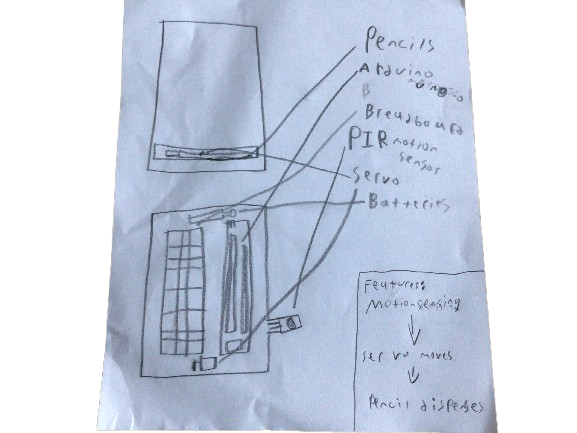 Pencils
Arduino
B
Breadboard
PIR motion
sensor
Servo
Batteries
Features:
Motionsensing
servo moves
Pencil dispenses